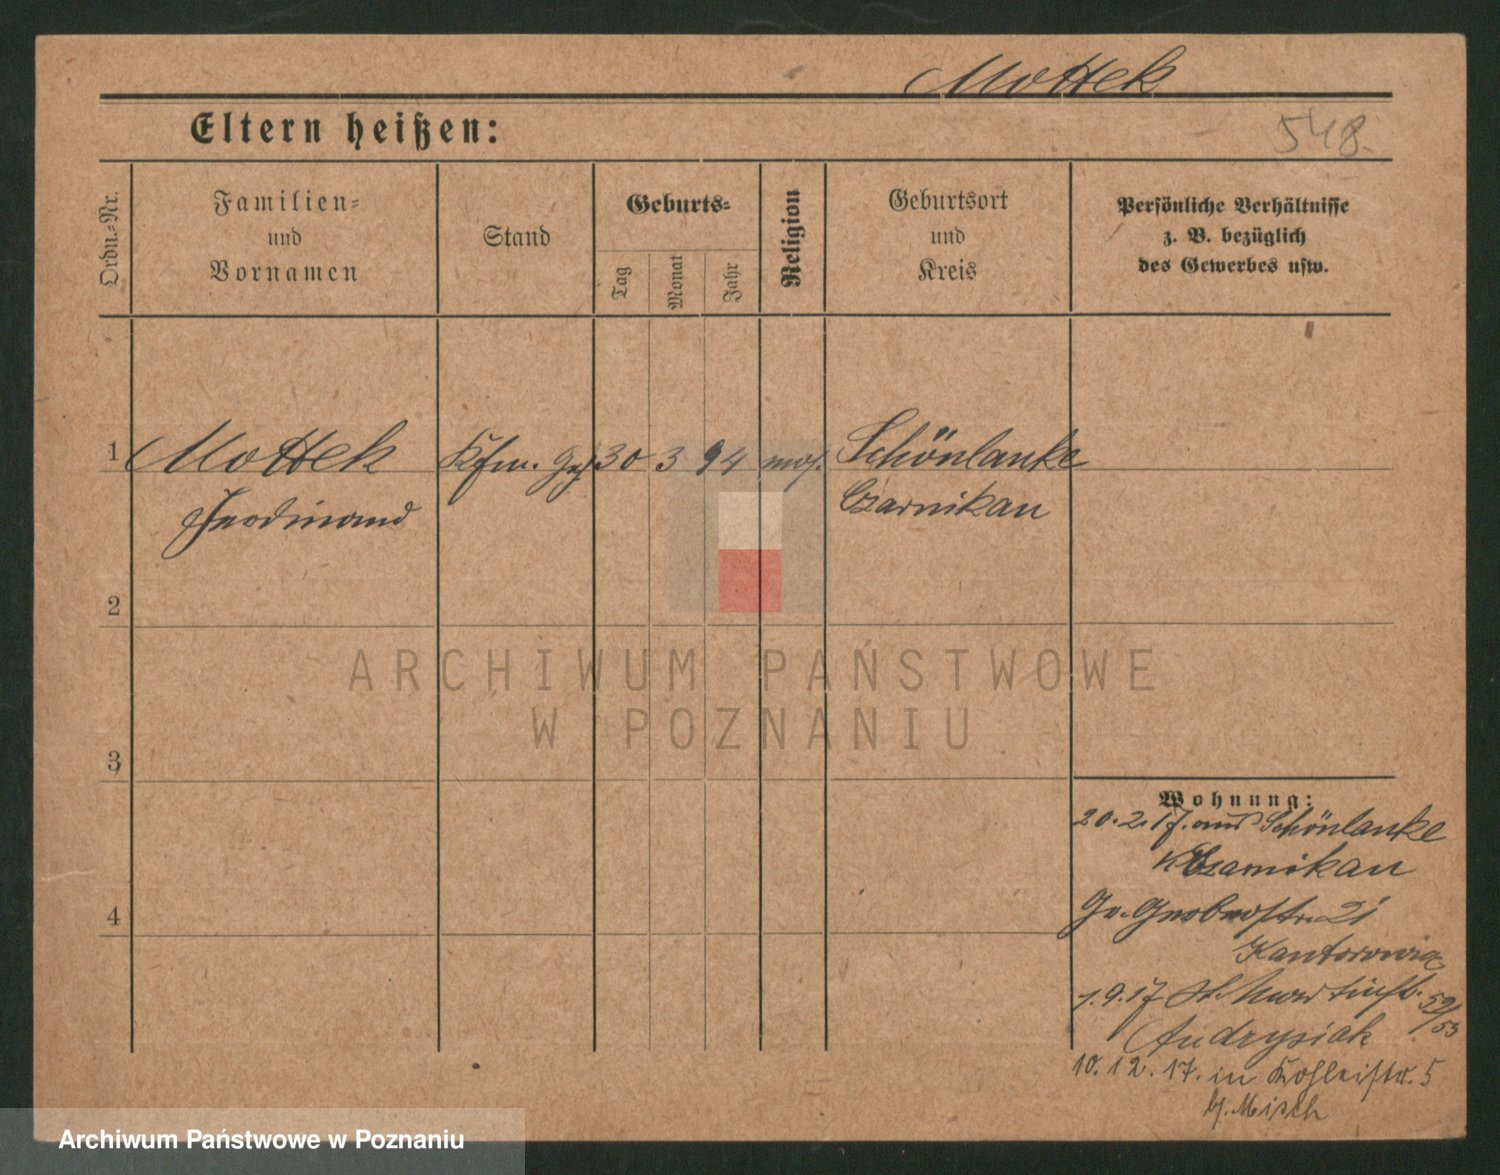 Mottek
Eltern heißen:
548.
Ordn.-Nr.
Familien-
und
Vornamen
Stand
Geburts-
Tag
Monat
Jahr
Religion
Geburtsort
und
Kreis
Persönliche Verhältnisse
z. B. bezüglich
des Gewerbes usw.
1 Mottek Kfm. 30 3 94 mos. Schönlanke
Ferdinand Czarnikau
2
ARCHIWUM PAŃSTWOWE
W POZNANIU
3
4
Wohnung:
20.2.17. aus Schönlanke
Czarnikau
Gr. 21
Kantorowicz
1.9.17 St. Martinstr. 52/53
Andrysiak
10.12.17. in 5
Misch
Archiwum Państwowe w Poznaniu